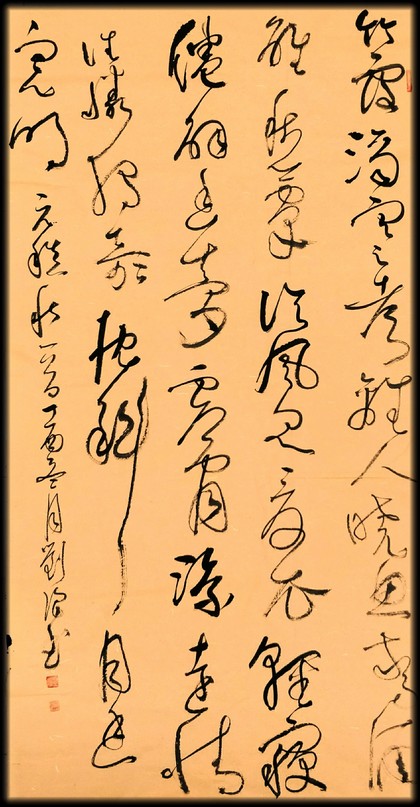 竹露滴寒聲離人曉思驚酒
醒秋簟冷風急夏衣輕寢
倦解幽夢慮閑添遠情
誰憐獨欹枕斜月透
窗明 元稹秋一首丁酉冬月劉書